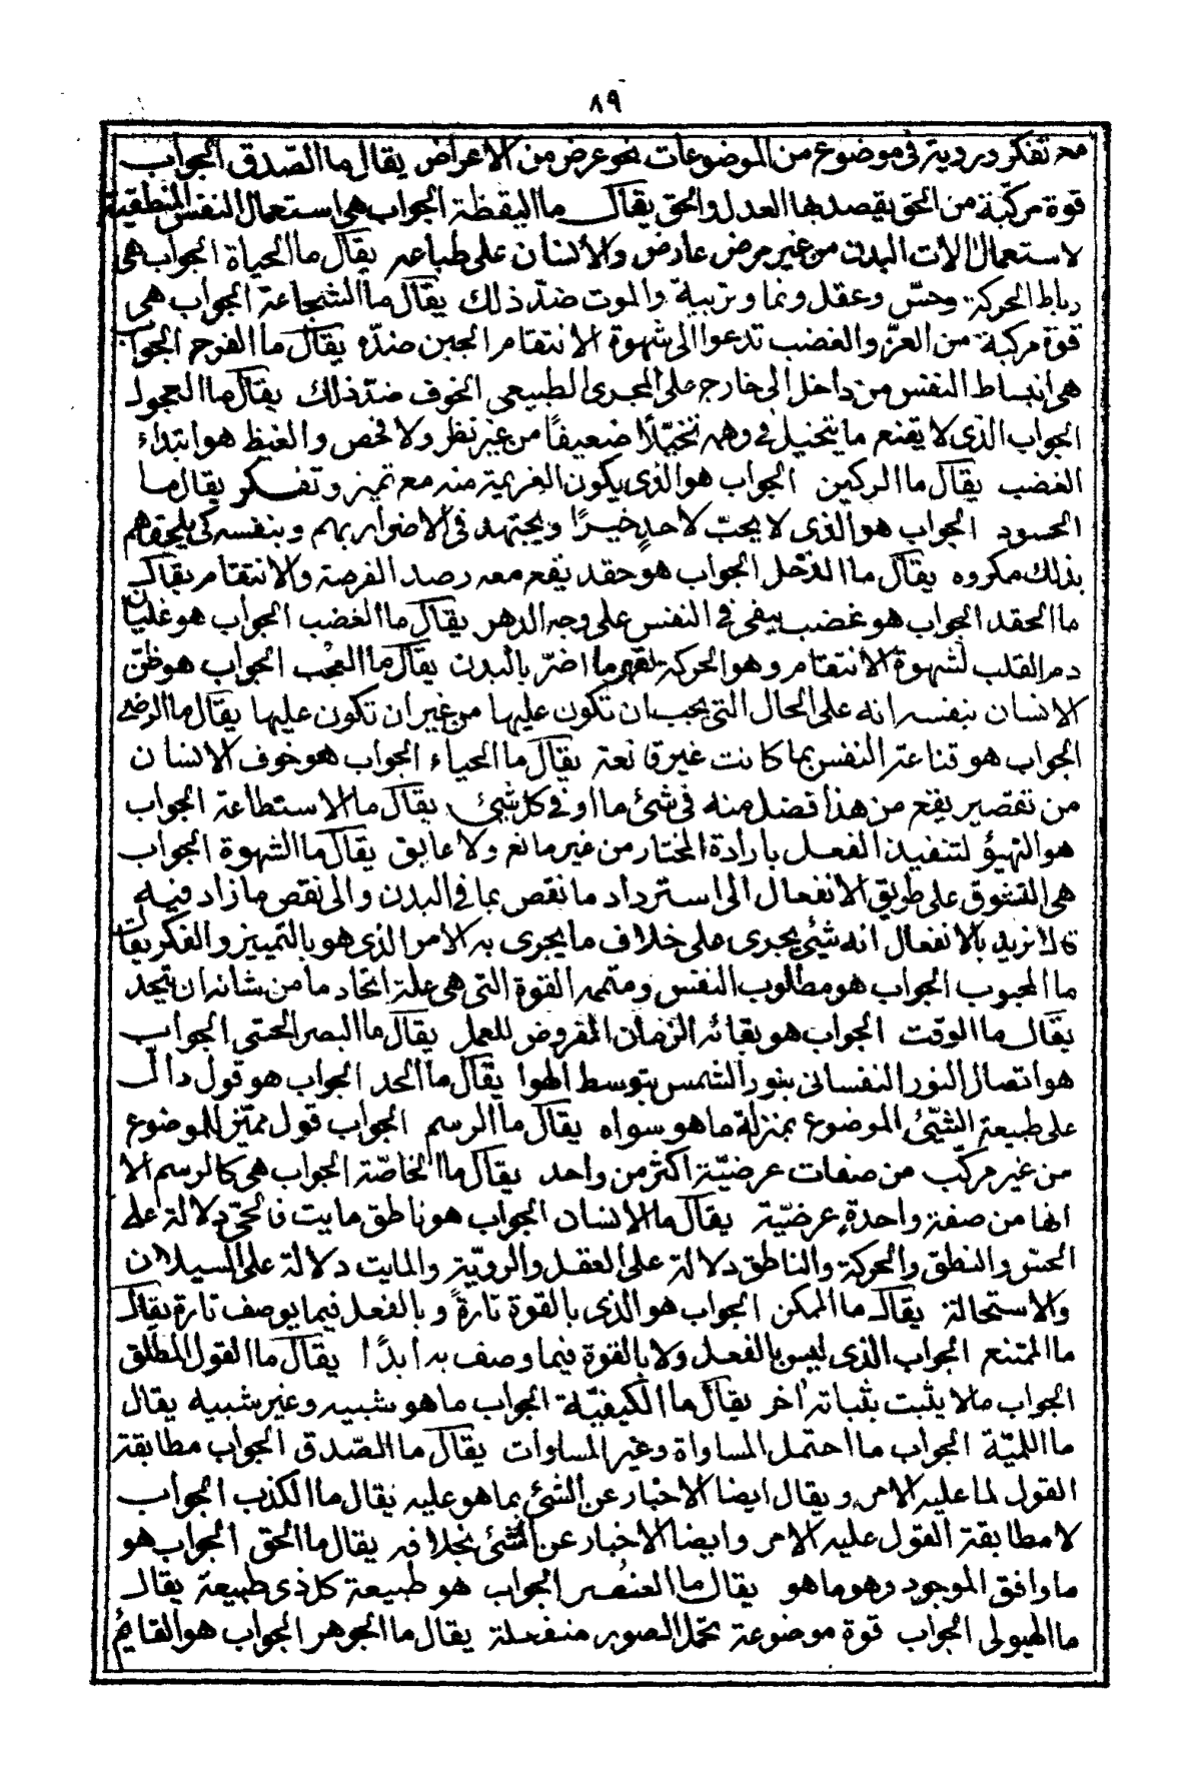 ٨٩
معه تفكر وروية فى موضوع من الموضوعات نحو عرض من الاعراض يقال ما الصّدق الجواب
قوة مركّبة من الحق يقصد بها العدل والحق يقال ما اليقظة الجواب هى استعمال النفس المنطقية
لاستعمال الات البدن من غير مرض عارض والانسان على طباعه يقال ما الحياة الجواب هى
رباط الحركة وحسّ وعقل ونما وتربية والموت ضدّ ذلك يقال ما الشجاعة الجواب هى
قوة مركبة من العزّ والغضب تدعوا الى شهوة الانتقام الجبن ضدّه يقال ما الفرح الجواب
هى انبساط النفس من داخل الى خارج على المجرى الطبيعى الخوف ضدّ ذلك يقال ما العجول
الجواب الذى لا يقنع ما يتخيل فى وهمه تخيّلًا ضعيفًا من غير نظر ولا فحص والغيظ هو ابتداء
الغضب يقال ما الركين الجواب هو الذى يكون العزيمة منه مع تميز وتفكر يقال ما
الحسود الجواب هو الذى لا يحبّ لاحدٍ خيرًا ويجتهد فى الاضرار بهم وبنفسه كى يلحقهم
بذلك مكروه يقال ما الذحل الجواب هو حقد يقع معه رصد الفرصة والانتقام يقال
ما الحقد الجواب هو غضب يبقى فى النفس على وجه الدهر يقال ما الغضب الجواب هو غليان
دم القلب لشهوة الانتقام وهو الحركة لقهر ما اضرّ بالبدن يقال ما العُجب الجواب هو ظنّ
الانسان بنفسه انه على الحال التى يجب ان تكون عليها من غير ان تكون عليها يقال ما الرضى
الجواب هو قناعة النفس بما كانت غير قانعة يقال ما الحياء الجواب هو خوف الانسان
من تقصير يقع من هذا فضل منه فى شئ ما او فى كل شئ يقال ما الاستطاعة الجواب
هو التهيؤ لتنفيذ الفعل بارادة المختار من غير مانع ولا عايق يقال ما الشهوة الجواب
هى التشوق على طريق الانفعال الى استرداد ما نقص بما فى البدن والى نقص ما زاد فيه
فلا نريد بالانفعال انه شئ يجرى على خلاف ما يجرى به الامر الذى هو بالتمييز والفكر يقال
ما المحبوب الجواب هو مطلوب النفس ومتممه القوة التى هى علة اتحاد ما من شانه ان يتحد
يقال ما الوقت الجواب هو بقائه الزمان المفروض للعمل يقال ما البصر الحسّى الجواب
هو اتصال النور النفسانى بنور الشمس بتوسط الهوا يقال ما الحد الجواب هو قول دالّ
على طبيعة الشّئ الموضوع بمنزلة ما هو سواه يقال ما الرسم الجواب قول مميّز للموضوع
من غير مركّب من صفات عرضيّة اكثر من واحد يقال ما الخاصّة الجواب هى كالرسم الا
انها من صفة واحدةٍ عرضيّة يقال ما الانسان الجواب هو ناطق مايت فالحىّ دلالة على
الحسّ والنطق والحركة والناطق دلالة على العقل والرويّة والمايت دلالة على السيلان
والاستحالة يقال ما الممكن الجواب هو الذى بالقوة تارةً وبالفعل فيما يوصف تارة يقال
ما الممتنع الجواب الذى ليس بالفعل ولا بالقوة فيما وصف به أبدًا يقال ما القول المطلق
الجواب ما لا يثبت بثباته أخر يقال ما الكيفيّة الجواب ما هو شبيه وغير شبيه يقال
ما اللميّة الجواب ما احتمل المساواة وغير المساوات يقال ما الصّدق الجواب مطابقة
القول لما عليه الامر ويقال ايضا الاخبار عن الشئ بما هو عليه يقال ما الكذب الجواب
لا مطابقة القول عليه الامر وايضا الاخبار عن الشئ بخلافه يقال ما الحق الجواب هو
ما وافق الموجود وهو ما هو يقال ما العنصر الجواب هو طبيعة كل ذى طبيعة يقال
ما الهيولى الجواب قوة موضوعة تحمل الصور منفعلة يقال ما الجوهر الجواب هو القايم